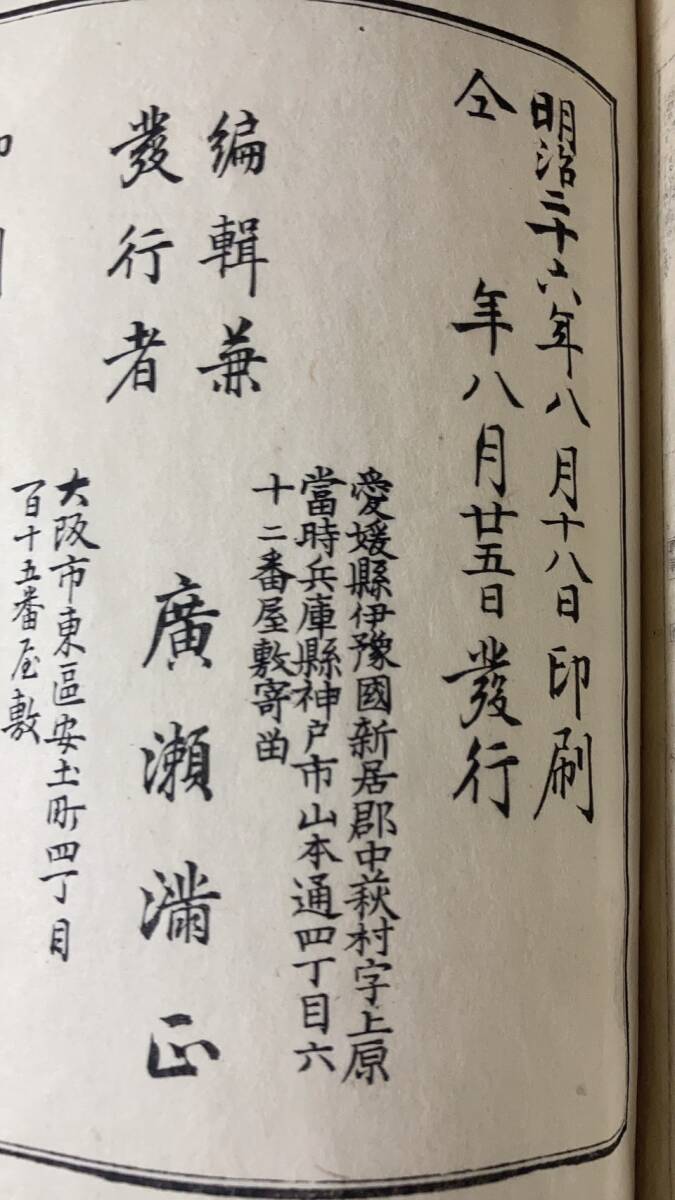 明治二十六年八月十八日印刷
仝年八月廿五日發行
編輯兼
發行者
愛媛縣伊豫國新居郡中萩村字上原
當時兵庫縣神戸市山本通四丁目六
十二番屋敷寄畄
廣瀬滿正
大阪市東區安土町四丁目
百十五番屋敷